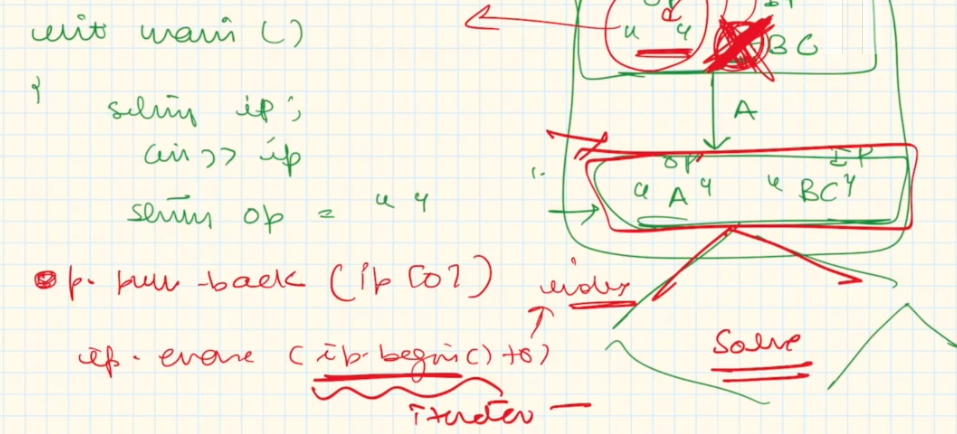 int main ()
{
string ip;
cin >> ip
string op = " "
op. push-back (ip [0])
ip. erase (ip.begin() + 0)
index
iterator
" "
BC
A
op IP
" A " " BC "
Solve